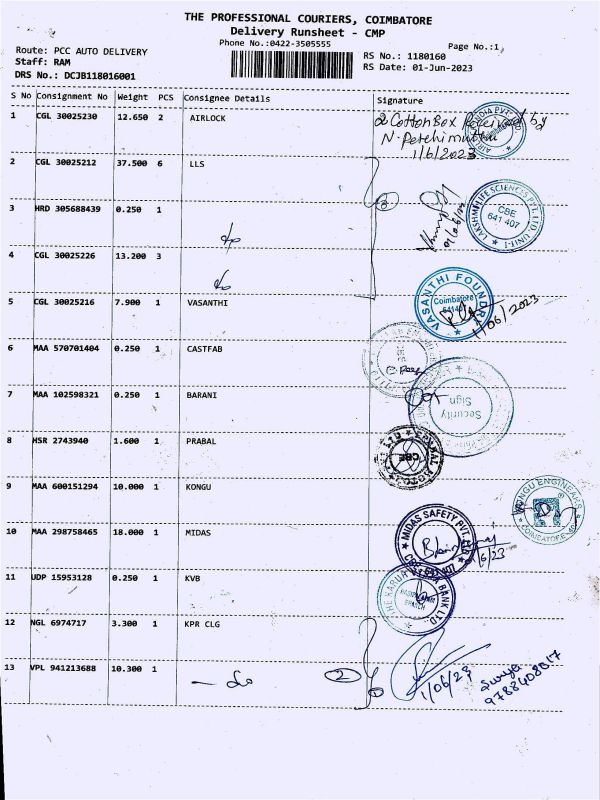 THE PROFESSIONAL COURIERS, COIMBATORE
Delivery Runsheet - CMP
Phone No.:0422-3505555
Page No.:1
Route: PCC AUTO DELIVERY
Staff: RAM
RS No.: 1180160
RS Date: 01-Jun-2023
DRS No.: DCJB118016001
S No Consignment No Weight PCS Consignee Details Signature
1 CGL 30025230 12.650 2 AIRLOCK
2 Cotton Box Received by
N. Petchimuthu
1/6/2023
2 CGL 30025212 37.500 6 LLS
3
LAKSHMI LIFE SCIENCES PVT. LTD. UNIT-I
CBE
641 407
3 HRD 305688439 0.250 1
do
01/06/23
4 CGL 30025226 13.200 3
do
5 CGL 30025216 7.900 1 VASANTHI
VASANTHI FOUNDRY
Coimbatore
1/06/2023
6 MAA 570701404 0.250 1 CASTFAB
7 MAA 102598321 0.250 1 BARANI
Security
Sign
8 HSR 2743940 1.600 1 PRABAL
CBE
9 MAA 600151294 10.000 1 KONGU
KONGU ENGINEERS
COIMBATORE
10 MAA 298758465 18.000 1 MIDAS
MIDAS SAFETY PVT. LTD
1/6/23
11 UDP 15953128 0.250 1 KVB
THE KARUR VYSYA BANK LTD
BRANCH
12 NGL 6974717 3.300 1 KPR CLG
13 VPL 941213688 10.300 1
- do
2
1/06/23
Surya
9788408017